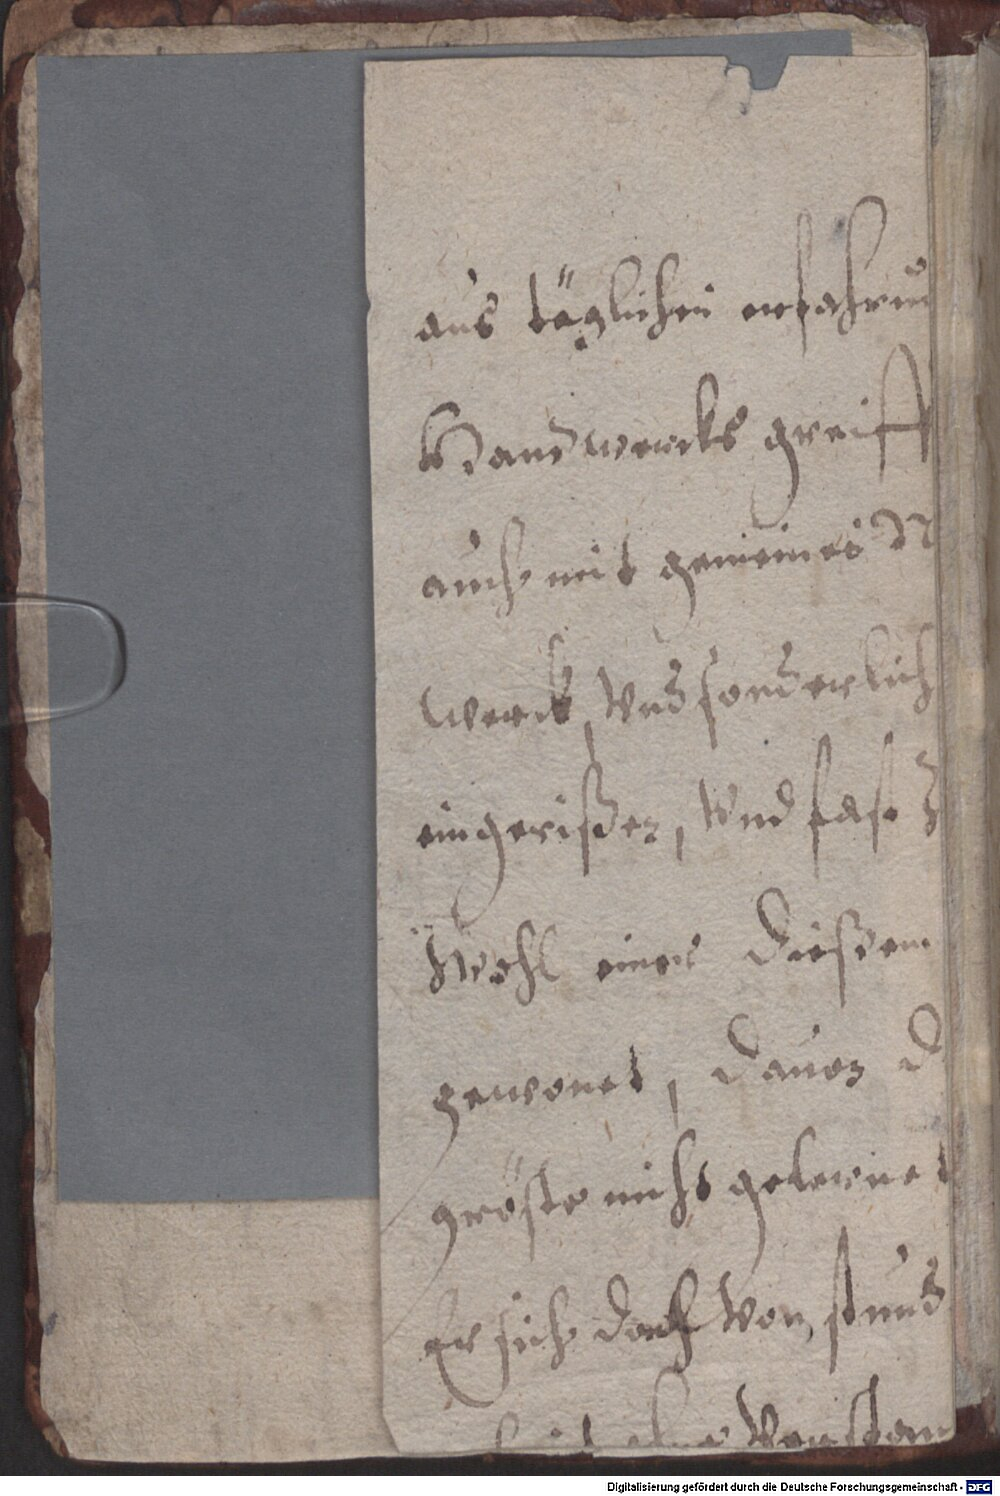 aus täglichen erfahrun
Handwercks greiff
auch mit gemeines N
werck, Vnd sonderlich
eingerißen, Vnd fast Z
Wohl einer dießem
gewonet, dauon d
gröste nicht gelernet
Er sich doch Von stund
Verstan
Digitalisierung gefördert durch die Deutsche Forschungsgemeinschaft - DFG